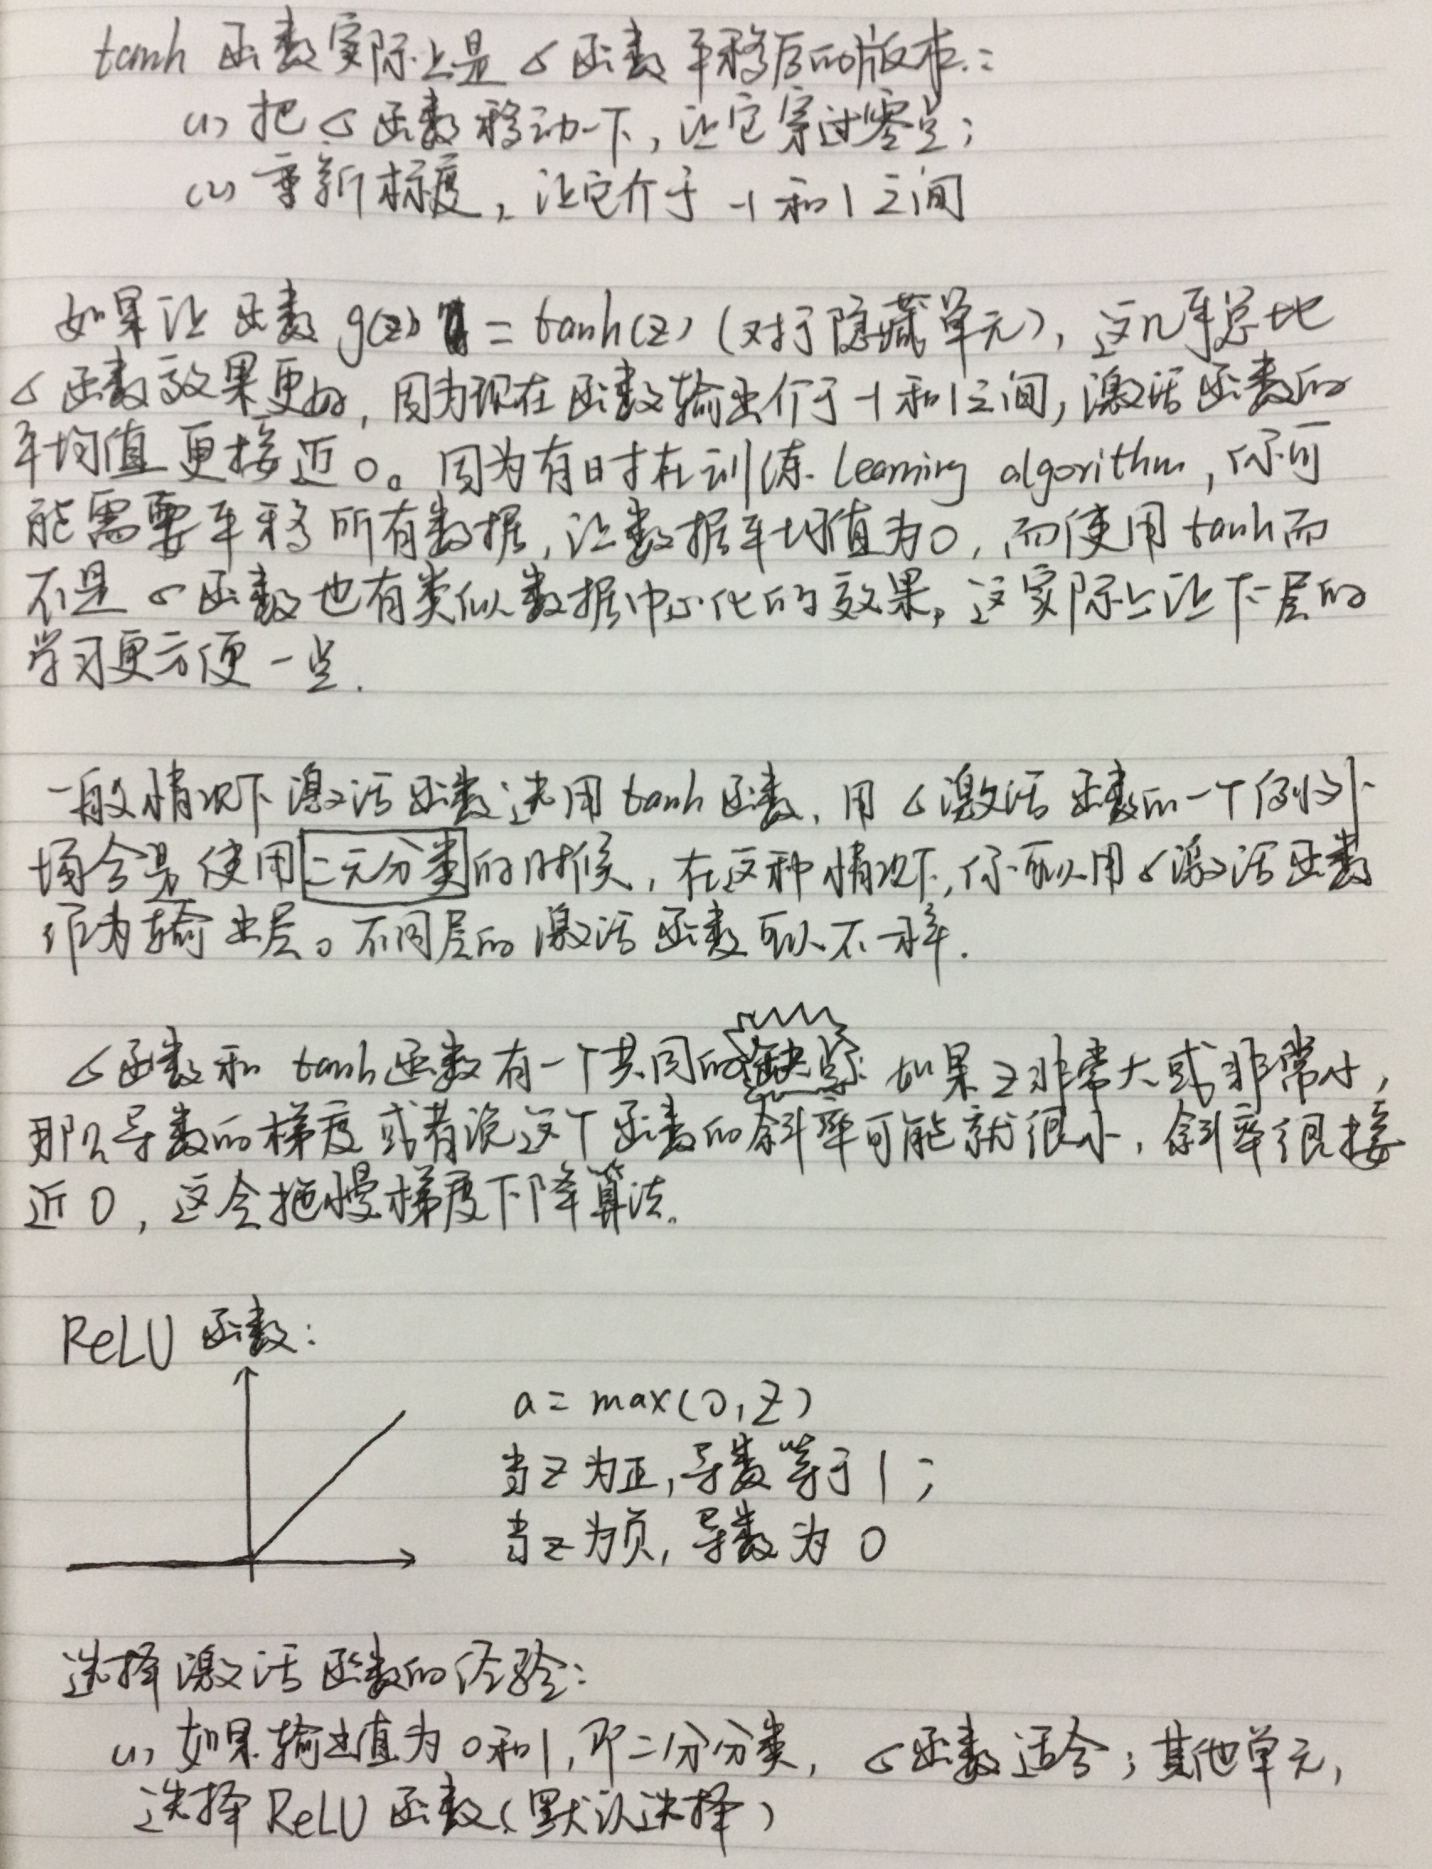 tanh 函数实际上是 σ 函数平移后的版本:
(1) 把 σ 函数移动一下, 让它穿过零点;
(2) 重新标度, 让它介于 -1 和 1 之间
如果让函数 g(z) = tanh(z) (对于隐藏单元), 这几乎总比
σ 函数效果更好, 因为现在函数输出介于 -1 和 1 之间, 激活函数的
平均值更接近 0。因为有时在训练 learning algorithm, 你可
能需要平移所有数据, 让数据平均值为 0, 而使用 tanh 而
不是 σ 函数也有类似数据中心化的效果, 这实际上让下一层的
学习更方便一些.
一般情况下激活函数选用 tanh 函数, 用 σ 激活函数的一个例外
场合是使用二元分类的时候, 在这种情况下, 你可以用 σ 激活函数
作为输出层。不同层的激活函数可以不一样.
σ 函数和 tanh 函数有一个共同的缺点: 如果 z 非常大或非常小,
那么导数的梯度或者说这个函数的斜率可能就很小, 斜率很接
近 0, 这会拖慢梯度下降算法.
ReLU 函数:
a = max(0, z)
当 z 为正, 导数等于 1;
当 z 为负, 导数为 0
选择激活函数的经验:
(1) 如果输出值为 0 和 1, 即二分分类, σ 函数适合; 其他单元,
选择 ReLU 函数 (默认选择)